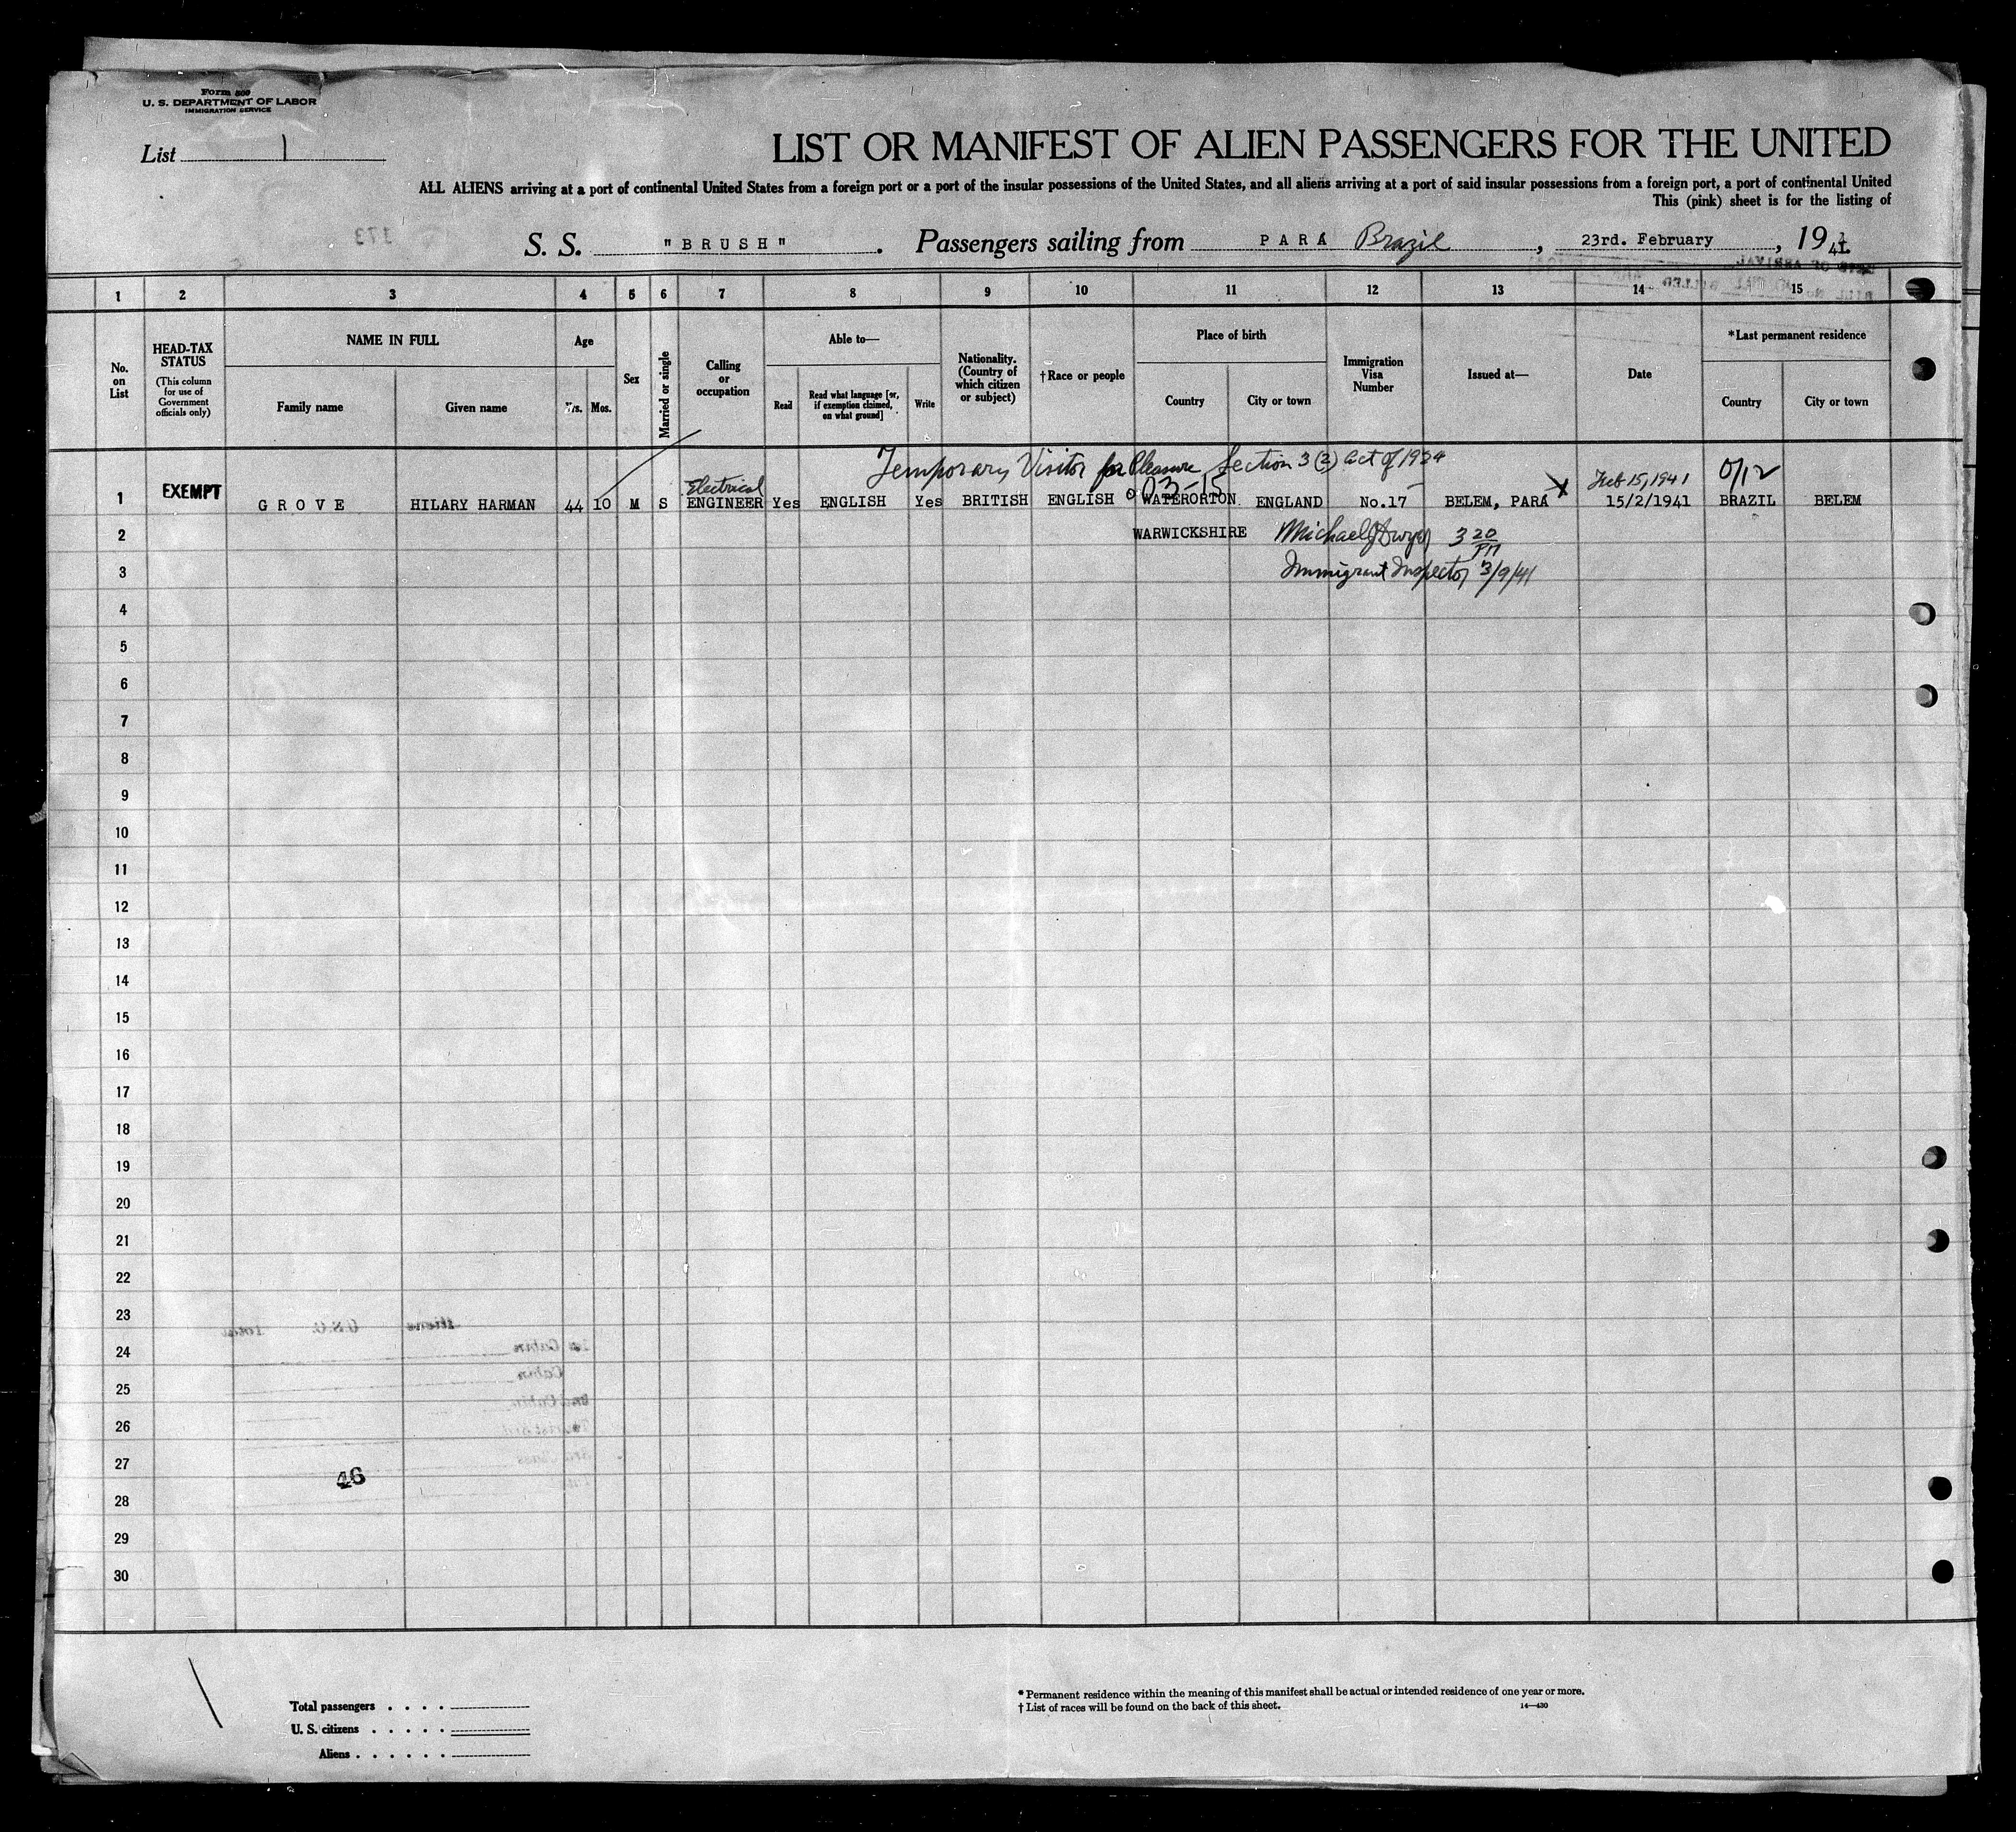 Form 500
U. S. DEPARTMENT OF LABOR
IMMIGRATION SERVICE
List 1
LIST OR MANIFEST OF ALIEN PASSENGERS FOR THE UNITED
ALL ALIENS arriving at a port of continental United States from a foreign port or a port of the insular possessions of the United States, and all aliens arriving at a port of said insular possessions from a foreign port, a port of continental United
This (pink) sheet is for the listing of
373
S. S. "BRUSH". Passengers sailing from PARÁ Brazil, 23rd. February, 1941
1 2 3 4 5 6 7 8 9 10 11 12 13 14 15
No. on List
HEAD-TAX STATUS
(This column for use of Government officials only)
NAME IN FULL
Family name
Given name
Age
Yrs.
Mos.
Sex
Married or single
Calling or occupation
Able to—
Read
Read what language [or, if exemption claimed, on what ground]
Write
Nationality. (Country of which citizen or subject)
†Race or people
Place of birth
Country
City or town
Immigration Visa Number
Issued at—
Date
*Last permanent residence
Country
City or town
Temporary Visitor for Pleasure Section 3 (2) Act of 1924
Electrical
03-15
Feb 15, 1941
0/12
1 EXEMPT GROVE HILARY HARMAN 44 10 M S ENGINEER Yes ENGLISH Yes BRITISH ENGLISH WATERORTON ENGLAND No.17 BELEM, PARÁ 15/2/1941 BRAZIL BELEM
2 WARWICKSHIRE Michael J Dwyer 3 20 PM
3 Immigrant Inspector 3/9/41
4
5
6
7
8
9
10
11
12
13
14
15
16
17
18
19
20
21
22
23
24
25
26
27
46
28
29
30
Total passengers . . . .
U. S. citizens . . . . .
Aliens . . . . . .
* Permanent residence within the meaning of this manifest shall be actual or intended residence of one year or more.
† List of races will be found on the back of this sheet. 14—430